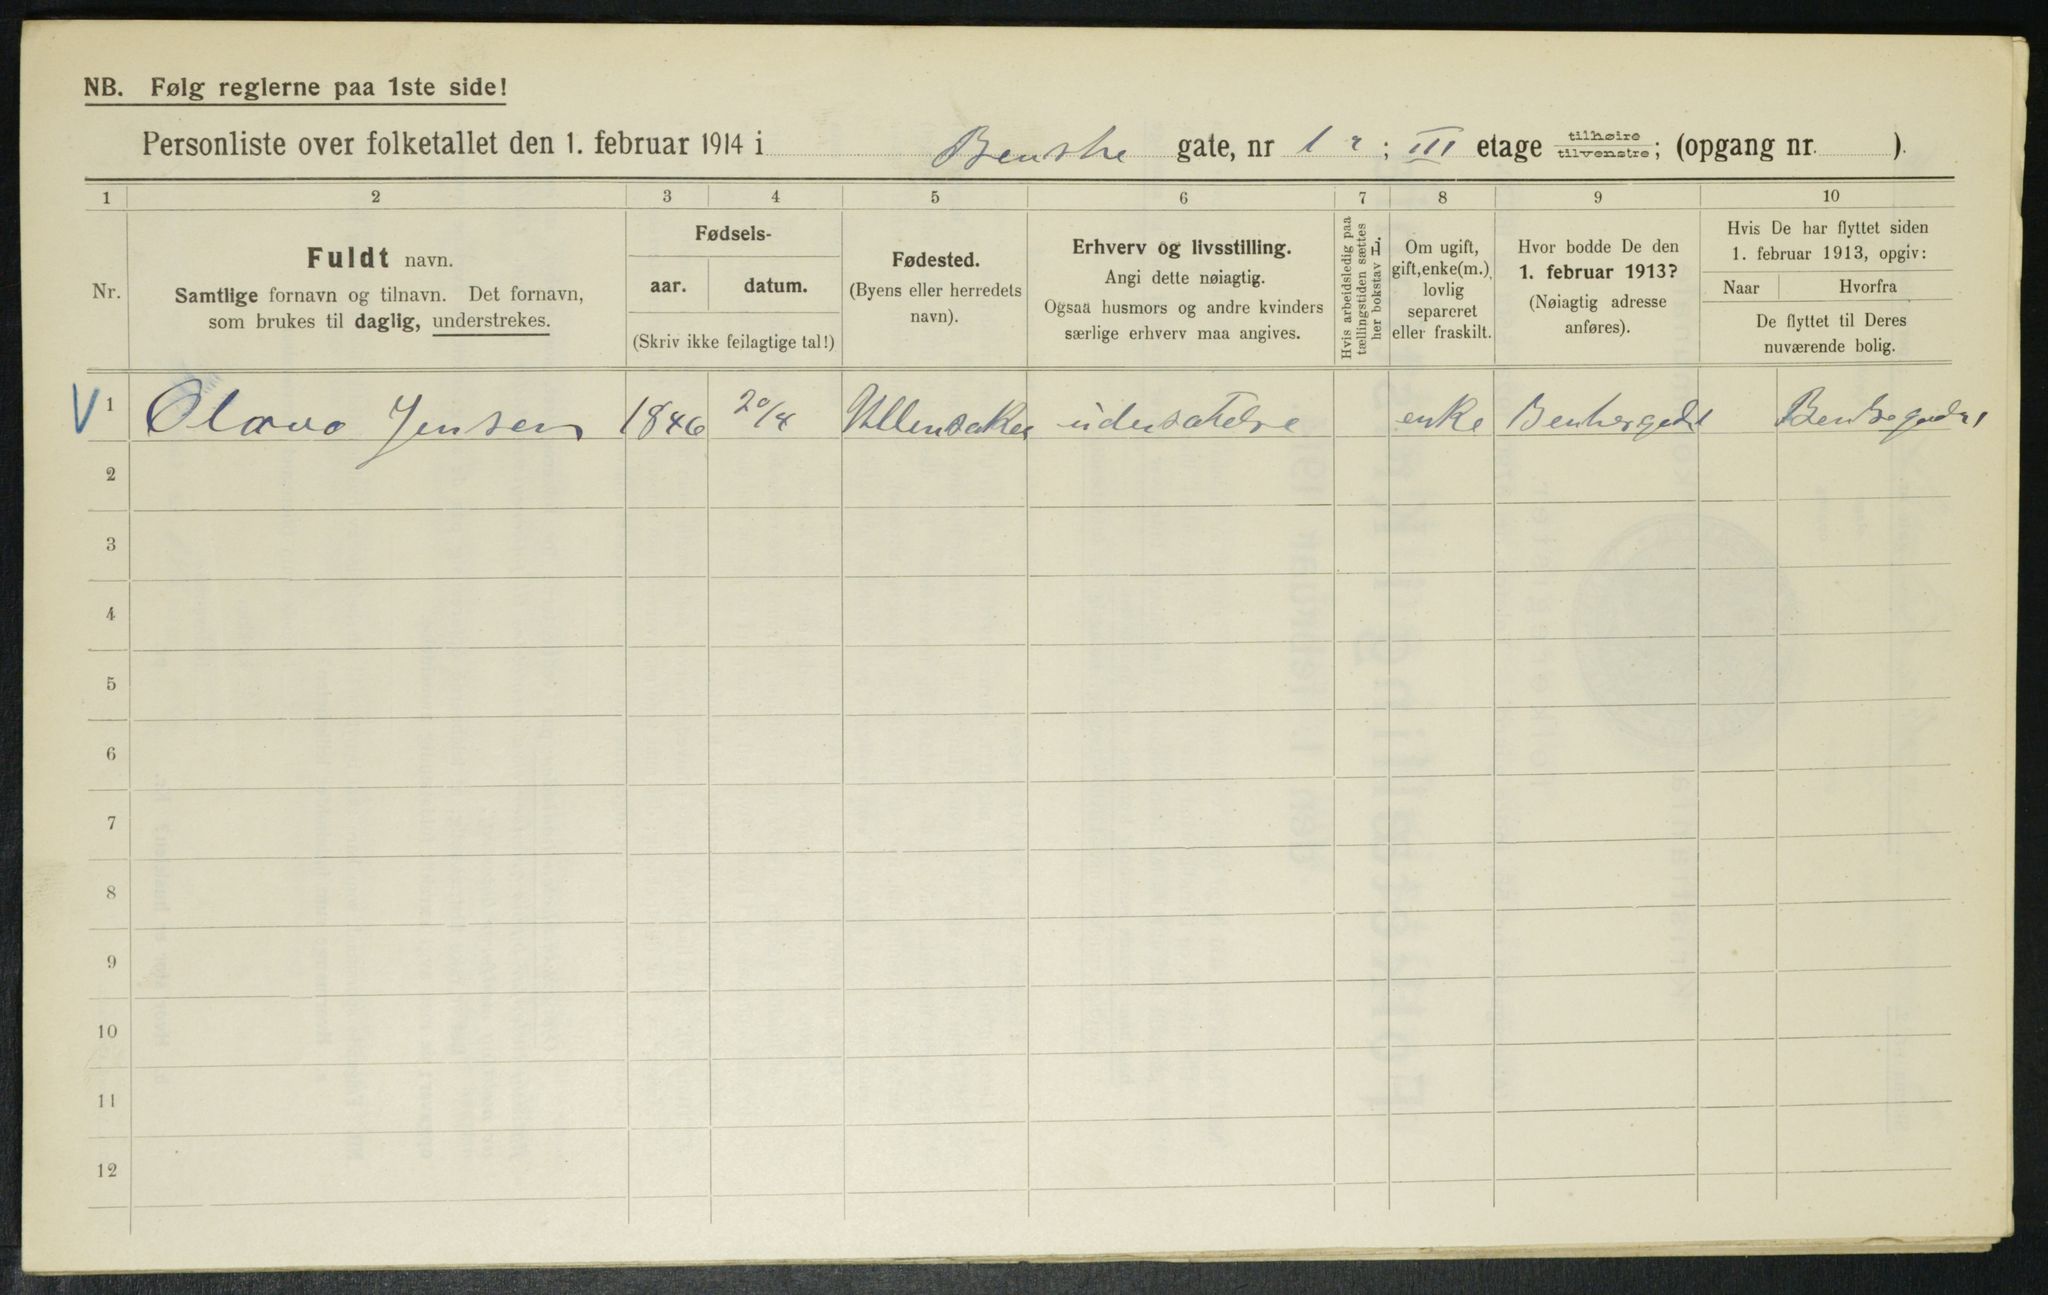 NB. Følg reglerne paa 1ste side!
Personliste over folketallet den 1. februar 1914 i gate, nr 1 ; III etage tilhøire tilvenstre; (opgang nr. ).
1 2 3 4 5 6 7 8 9 10
Nr.
Fuldt navn.
Samtlige fornavn og tilnavn. Det fornavn,
som brukes til daglig, understrekes.
Fødsels-
aar. datum.
(Skriv ikke feilagtige tal!)
Fødested.
(Byens eller herredets
navn).
Erhverv og livsstilling.
Angi dette nøiagtig.
Ogsaa husmors og andre kvinders
særlige erhverv maa angives.
Hvis arbeidsledig paa
tællingstiden sættes
her bokstav L.
Om ugift,
gift, enke(m.),
lovlig
separeret
eller fraskilt.
Hvor bodde De den
1. februar 1913?
(Nøiagtig adresse
anføres).
Hvis De har flyttet siden
1. februar 1913, opgiv:
Naar Hvorfra
De flyttet til Deres
nuværende bolig.
V 1 Olava Jensen 1846 20/4 Ullensaker enke
2
3
4
5
6
7
8
9
10
11
12